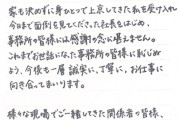 家も決めずに身ひとつで上京してきた私を受け入れ
今日まで面倒を見てくださった社長をはじめ、
事務所の皆様には感謝の念に堪えません。
これまでお世話になった事務所の皆様に恥じぬよう
よう、今後も一層誠実に、丁寧に、お仕事に
向き合ってまいります。
様々な現場でご一緒してきた関係者の皆様、